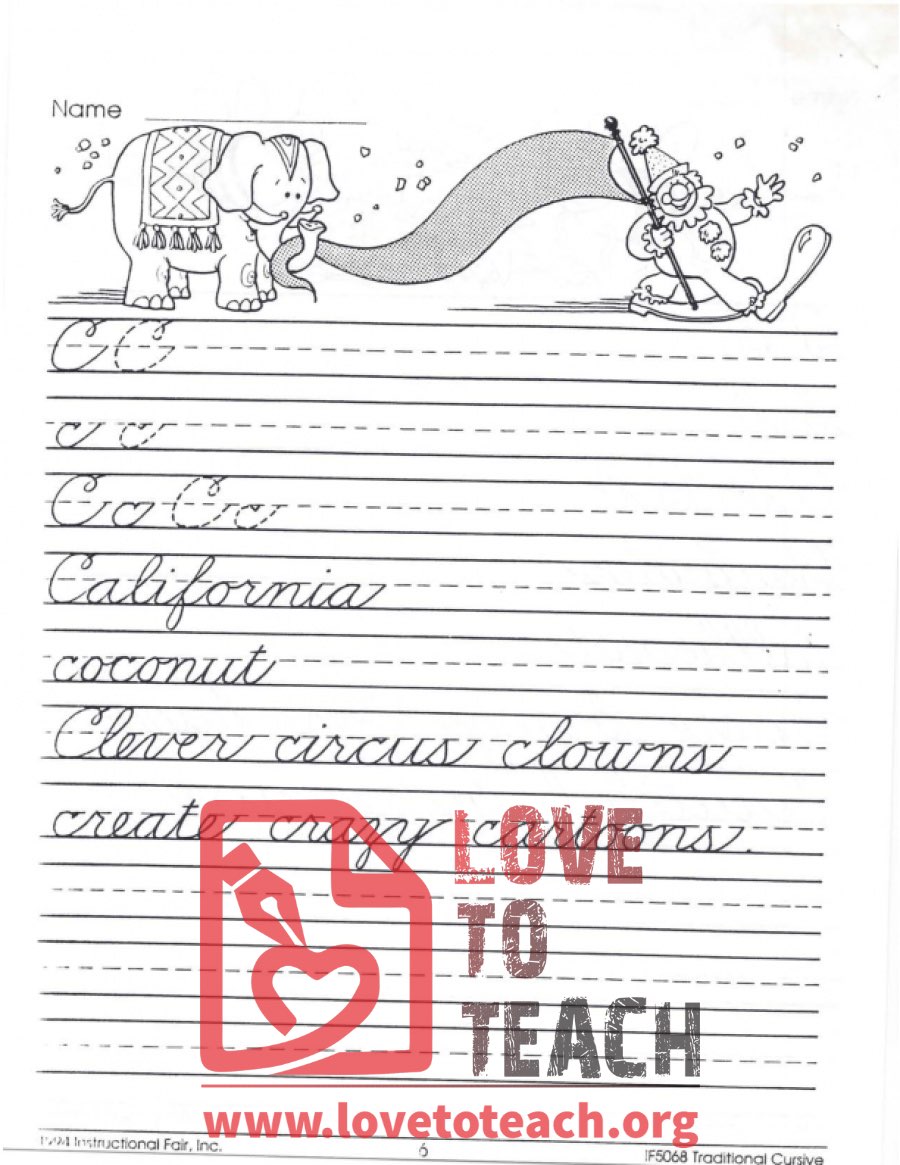 Name
C C
c c
Cc Cc
California
coconut
Clever circus clowns
create crazy cartoons.
LOVE
TO
TEACH
www.lovetoteach.org
1994 Instructional Fair, Inc. 6 IF5068 Traditional Cursive